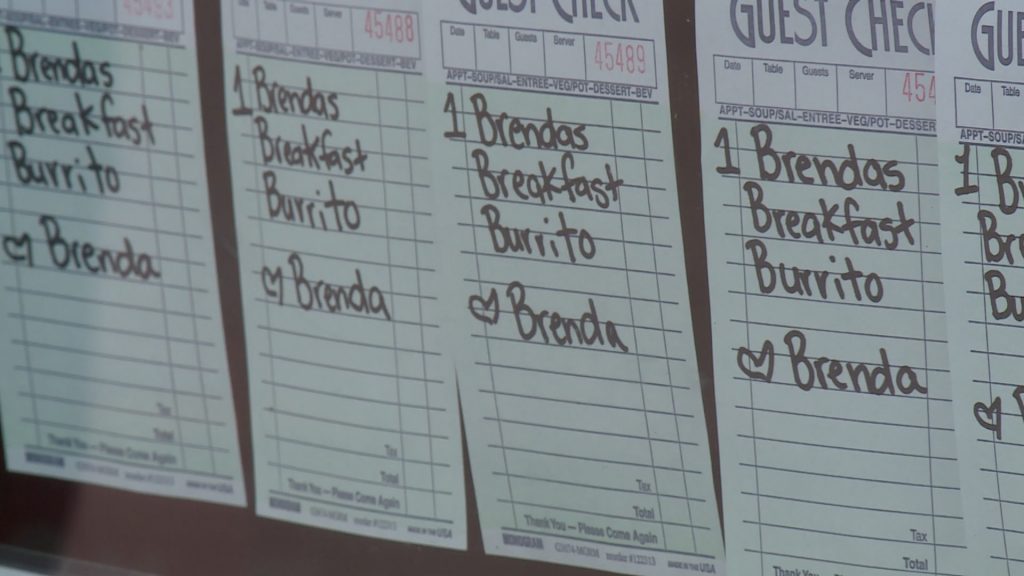 45483
Brendas
Breakfast
Burrito
Brenda
Tax
Total
Thank You — Please Come Again
Date Table Guests Server
45488
APPT-SOUP/SAL-ENTREE-VEG/POT-DESSERT-BEV
1 Brendas
Breakfast
Burrito
Brenda
Tax
Total
Thank You — Please Come Again
MADE IN THE USA
GUEST CHECK
Date Table Guests Server
45489
APPT-SOUP/SAL-ENTREE-VEG/POT-DESSERT-BEV
1 Brendas
Breakfast
Burrito
Brenda
Tax
Total
Thank You — Please Come Again
MADE IN THE USA
GUEST CHEC
Date Table Guests Server
454
APPT-SOUP/SAL-ENTREE-VEG/POT-DESSER
1 Brendas
Breakfast
Burrito
Brenda
Tax
Total
Thank You — Please Come
GUE
Date Table
APPT-SOUP/SA
1 B
Bre
Bu